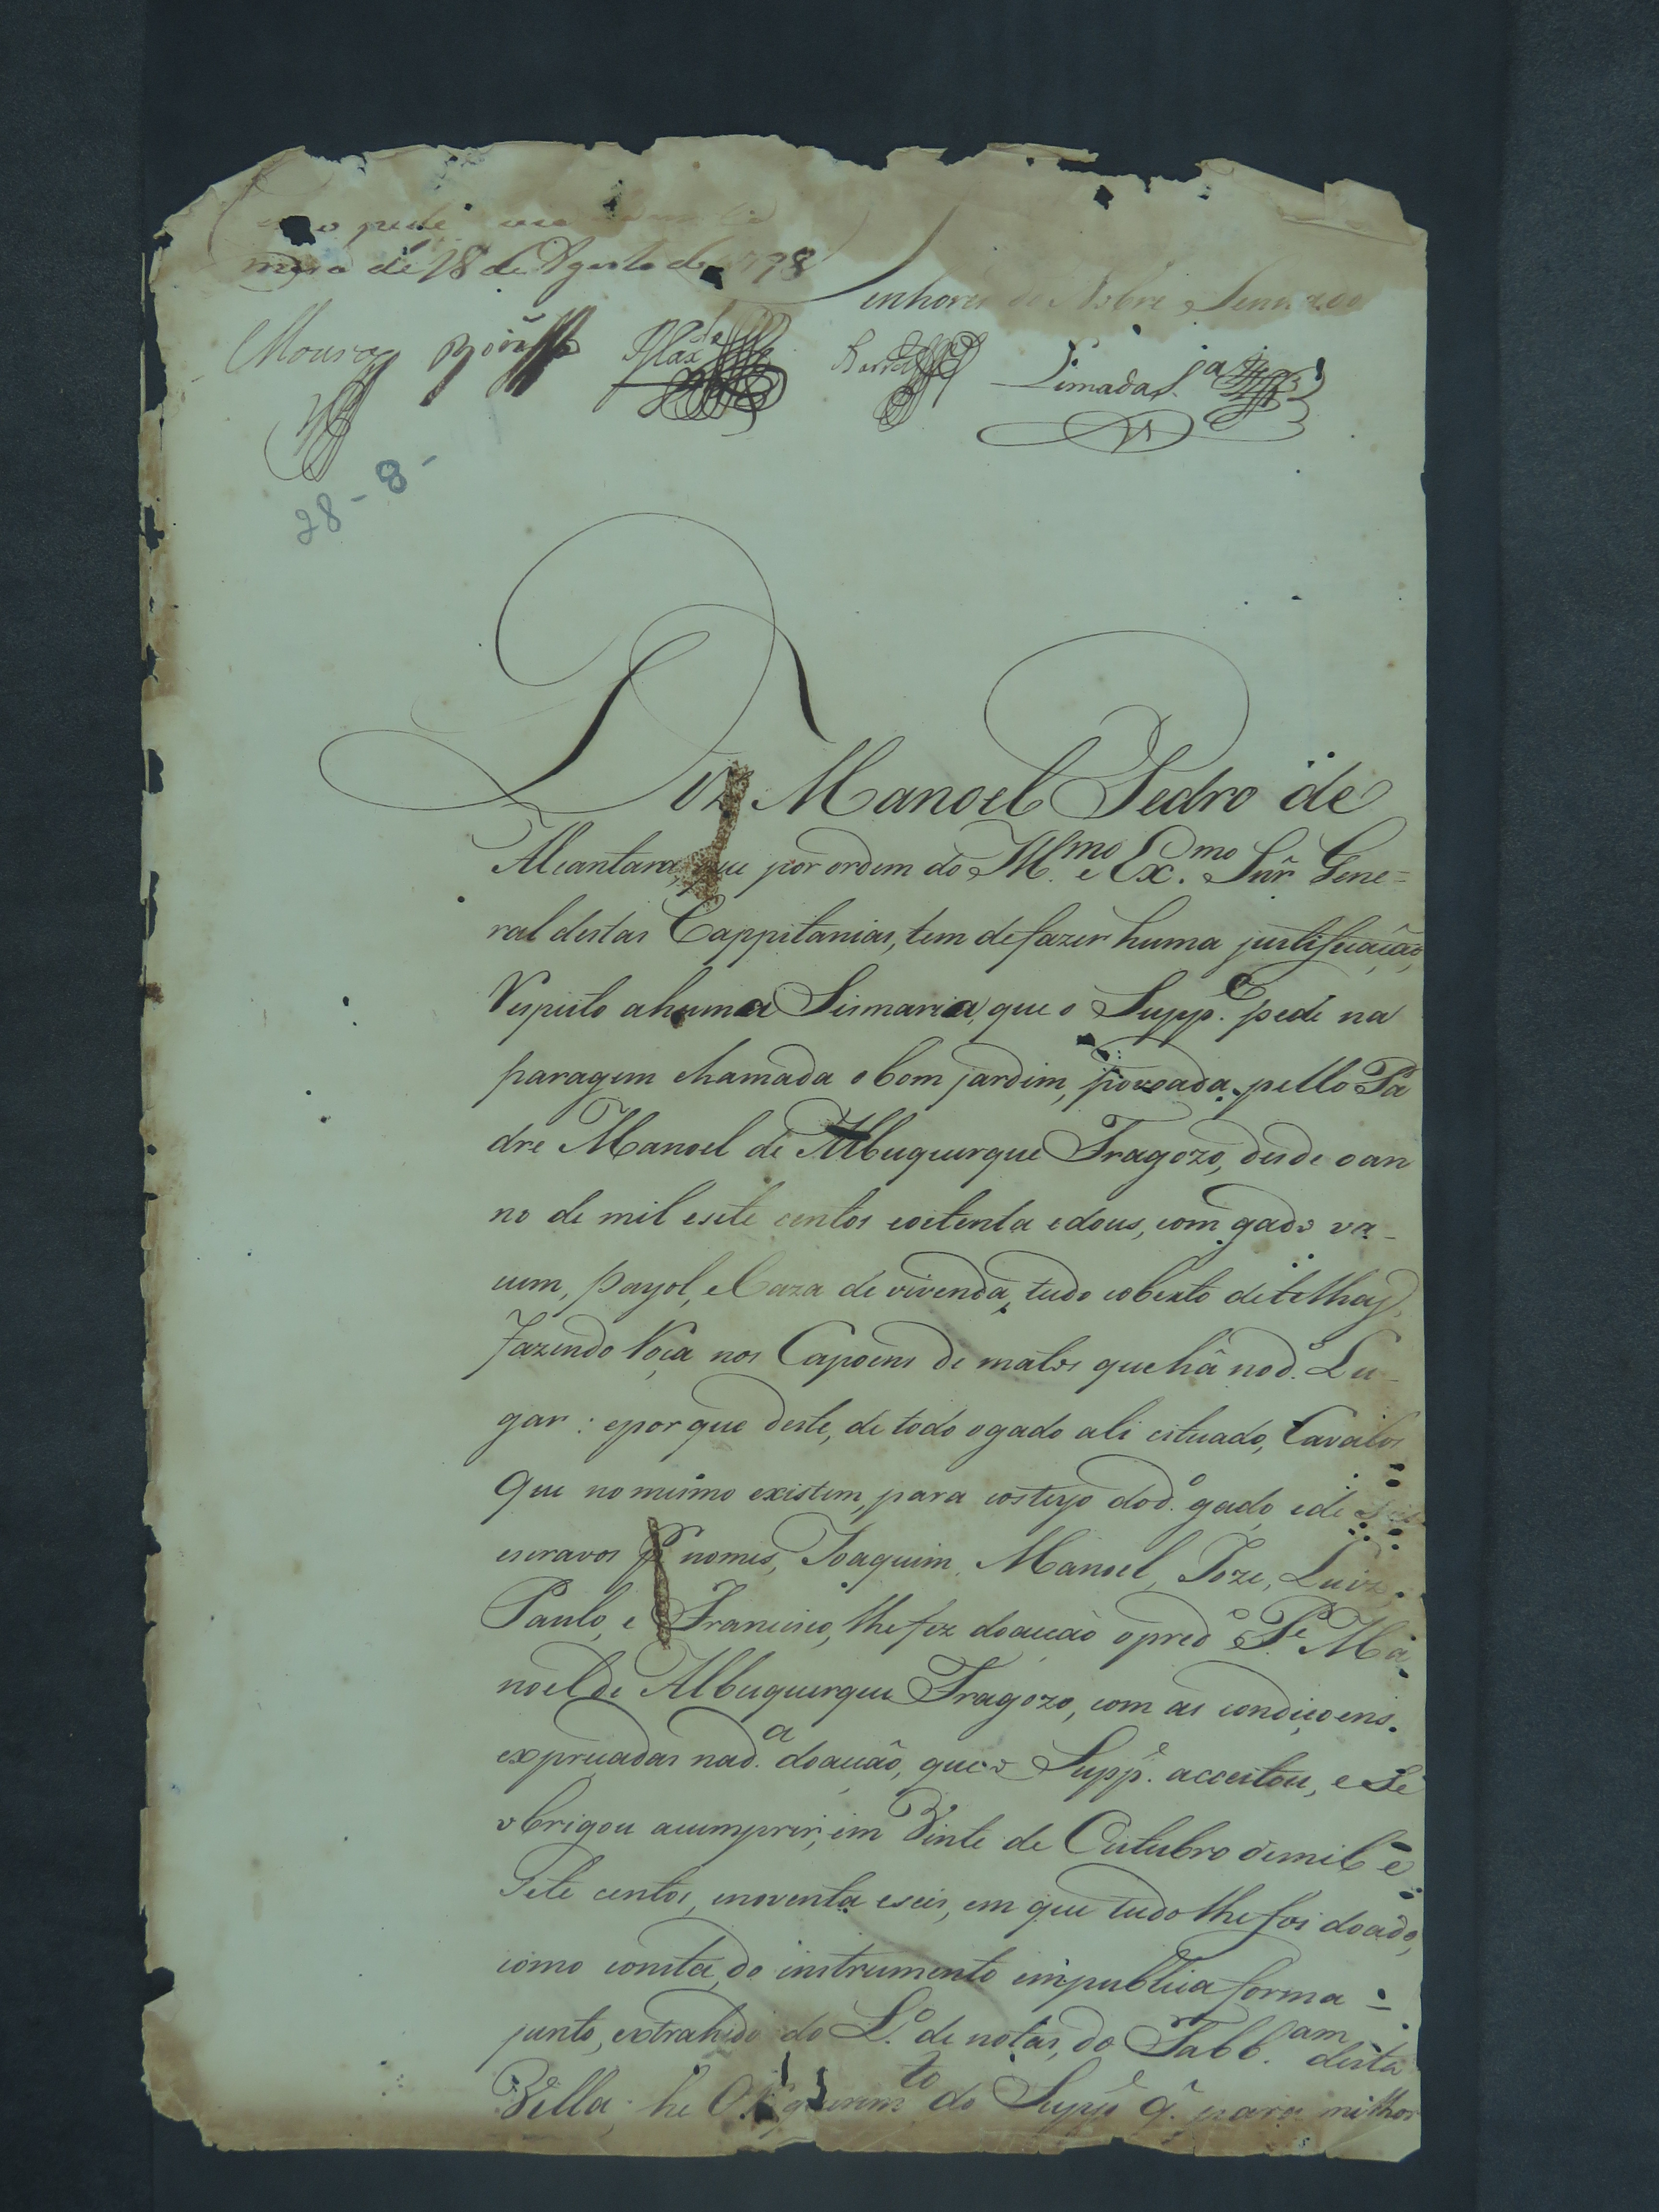 pede
de 18 de Agosto de 1798
Senhores do Nobre Senado
Moura
Limada S.ª
28-8-
Diz Manoel Pedro de
Alcantara, que por ordem do Ill.mo e Ex.mo Snr̃ Gene=
ral destas Cappitanias, tem de fazer huma justificação,
Respeito a huma Sismaria, que o Supp.e pede na
paragem chamada o bom jardim, povoada pello Pa
dre Manoel de Albuquerque Fragozo, desde o an
no de mil e sete centos e oitenta e dous, com gado va_
cum, payol, e Caza de vivenda, tudo coberto de telha,
Fazendo Roça nos Capoens de matos que hâ no d.o Lu_
gar: e por que deste, de todo o gado ali cituado, Cavalos
Que no mesmo existem, para costeyo do d.o gado, e de seis
escravos p nomes, Joaquim, Manoel, Joze, Luiz,
Paulo, e Francisco, lhe fez doação o pred.o P.e Ma
noel de Albuquerque Fragozo, com as condiçoens
expreçadas na d.a doacão, que o Supp.e acceitou, e Se
obrigou a cumprir, em Vinte de Outubro de mil e
Sete centos, e noventa e seis, em que tudo lhe foi doado,
como consta, do instrumento em publica forma
junto, extrahido do L.o de notas, do Tabb.am desta
Villa, he O Requerim.to do Supp.e q̃ para milhor